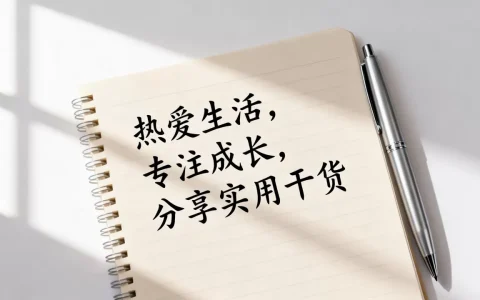 热爱生活，
专注成长，
分享实用干货